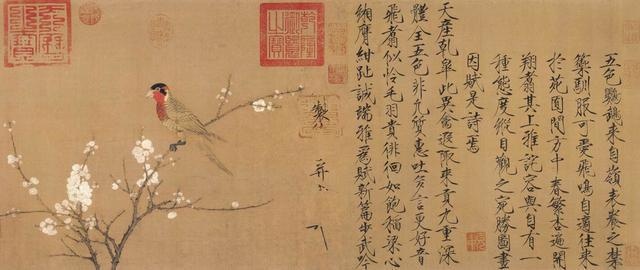 五色鸚鵡來自嶺表養之禁
籞馴服可愛飛鳴自適往來
於苑囿間方中春繁杏遍開
翔翥其上雅詫容與自有一
種態度縱目觀之宛勝圖畫
因賦是詩焉
天產乾皋此異禽遐陬來貢九重深
體全五色非凡質惠吐多言更好音
飛翥似憐毛羽貴徘徊如飽稻粱心
緗膺紺趾誠端雅爲賦新篇步武吟
製